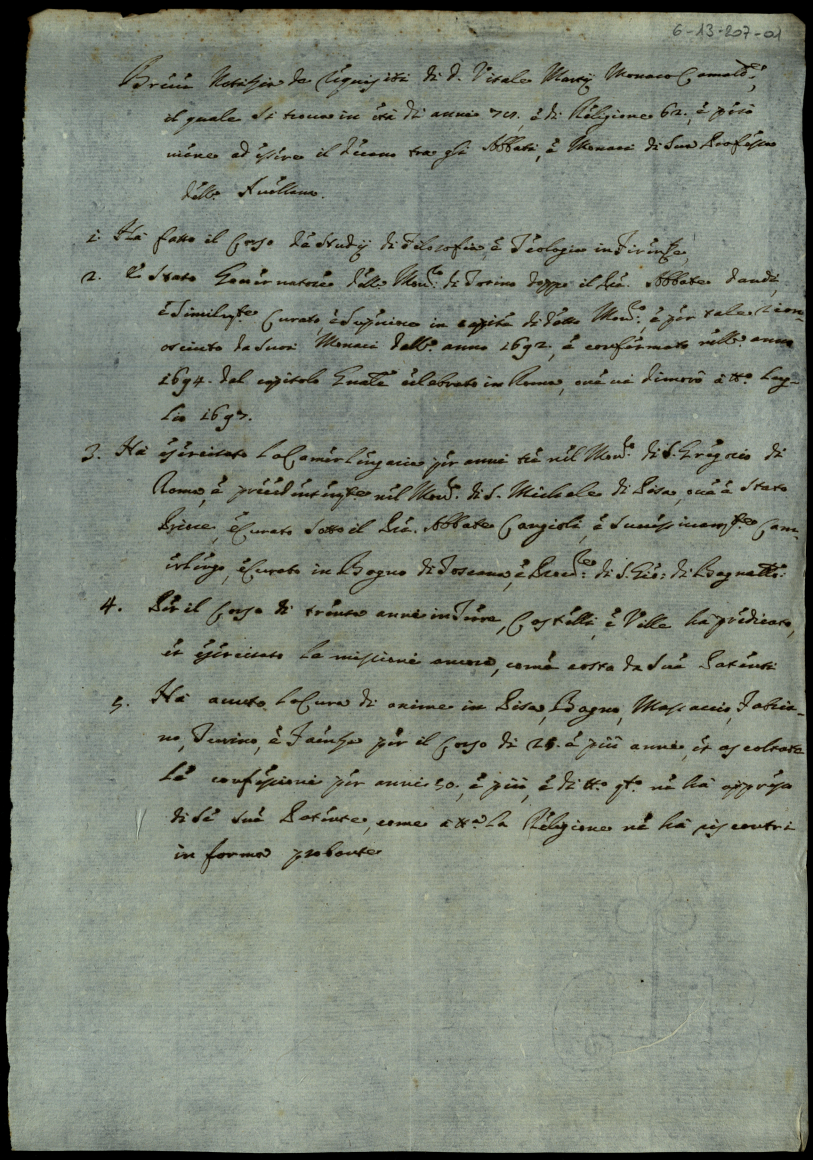 6-13-207-01
Breve Notitzia de Requisiti di D. Vitale Martij Monaco Camald.e,
il quale si trova in età di anni 78. e di Religione 62., è poco
mene ad essere il Decano tra gli Abbati, e Monaci di Sua Professe
dell'Avellana.
1. Hà fatto il Corso dè Studij di Filosofia, è Teologia in Firenze,
2. È Stato Governatore della Mon.o di Torino doppo il Rd. Abbate
è Similm.te Curato, è Superiore in capite di detto Mon.o, è per tale
osciuto da Suoi Monaci dell'anno 1692. è confirmato nell'anno
1694. dal capitolo Gnãle celebrato in Roma, ove vi dimorò à tt.o Lug-
lio 1697.
3. Hà esercitato La Camerlingaria per anni trè nel Mon.o di S. Gregorio di
Roma, è precedentem.te nel Mon.o di S. Michele di Pisa, ove è Stato
Priore, è Curato Sotto il Abbate Cangioli, è Successivam.te Cam-
erlingo, è Curato in Bagno di Toscana, è di S. Gio: di Bagnatto:
4. Per il Corso di trenta anni in Terre, Castelli, è Ville hà predicato,
et esercitato Le missioni ancora, come costa da Sue Patenti
5. Hà avuto La Cura di anime in Pisa, Bagno, Massaccio, Fabria-
no, Turino, è Faenza per il Corso di 25. è più anni, et ascoltate
Le confessioni per anni 50., è più, è di tt.o q.to ne hà appresso
di Sè Sue Patente, come à tt.a La Religione ne hà riscontri
in forma probante